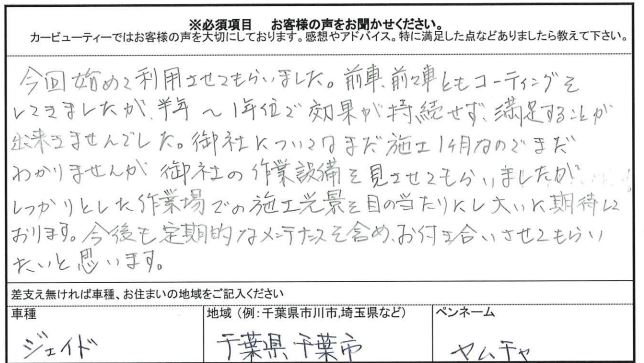 ※必須項目　お客様の声をお聞かせください。
カービューティーではお客様の声を大切にしております。感想やアドバイス。特に満足した点などありましたら教えて下さい。
今回始めて利用させてもらいました。前車、前々車ともコーティングを
してきましたが、半年～1年位で効果が持続せず、満足することが
出来ませんでした。御社についてはまだ施工1ヶ月なのでまだ
わかりませんが御社の作業設備を見させてもらいましたが
しっかりとした作業場での施工光景を目の当たりにし大いに期待して
おります。今後も定期的なメンテナンスを含め、お付き合いさせてもらい
たいと思います。
差支え無ければ車種、お住まいの地域をご記入ください
車種　地域（例：千葉県市川市,埼玉県など）　ペンネーム
ジェイド　千葉県千葉市　ヤムチャ